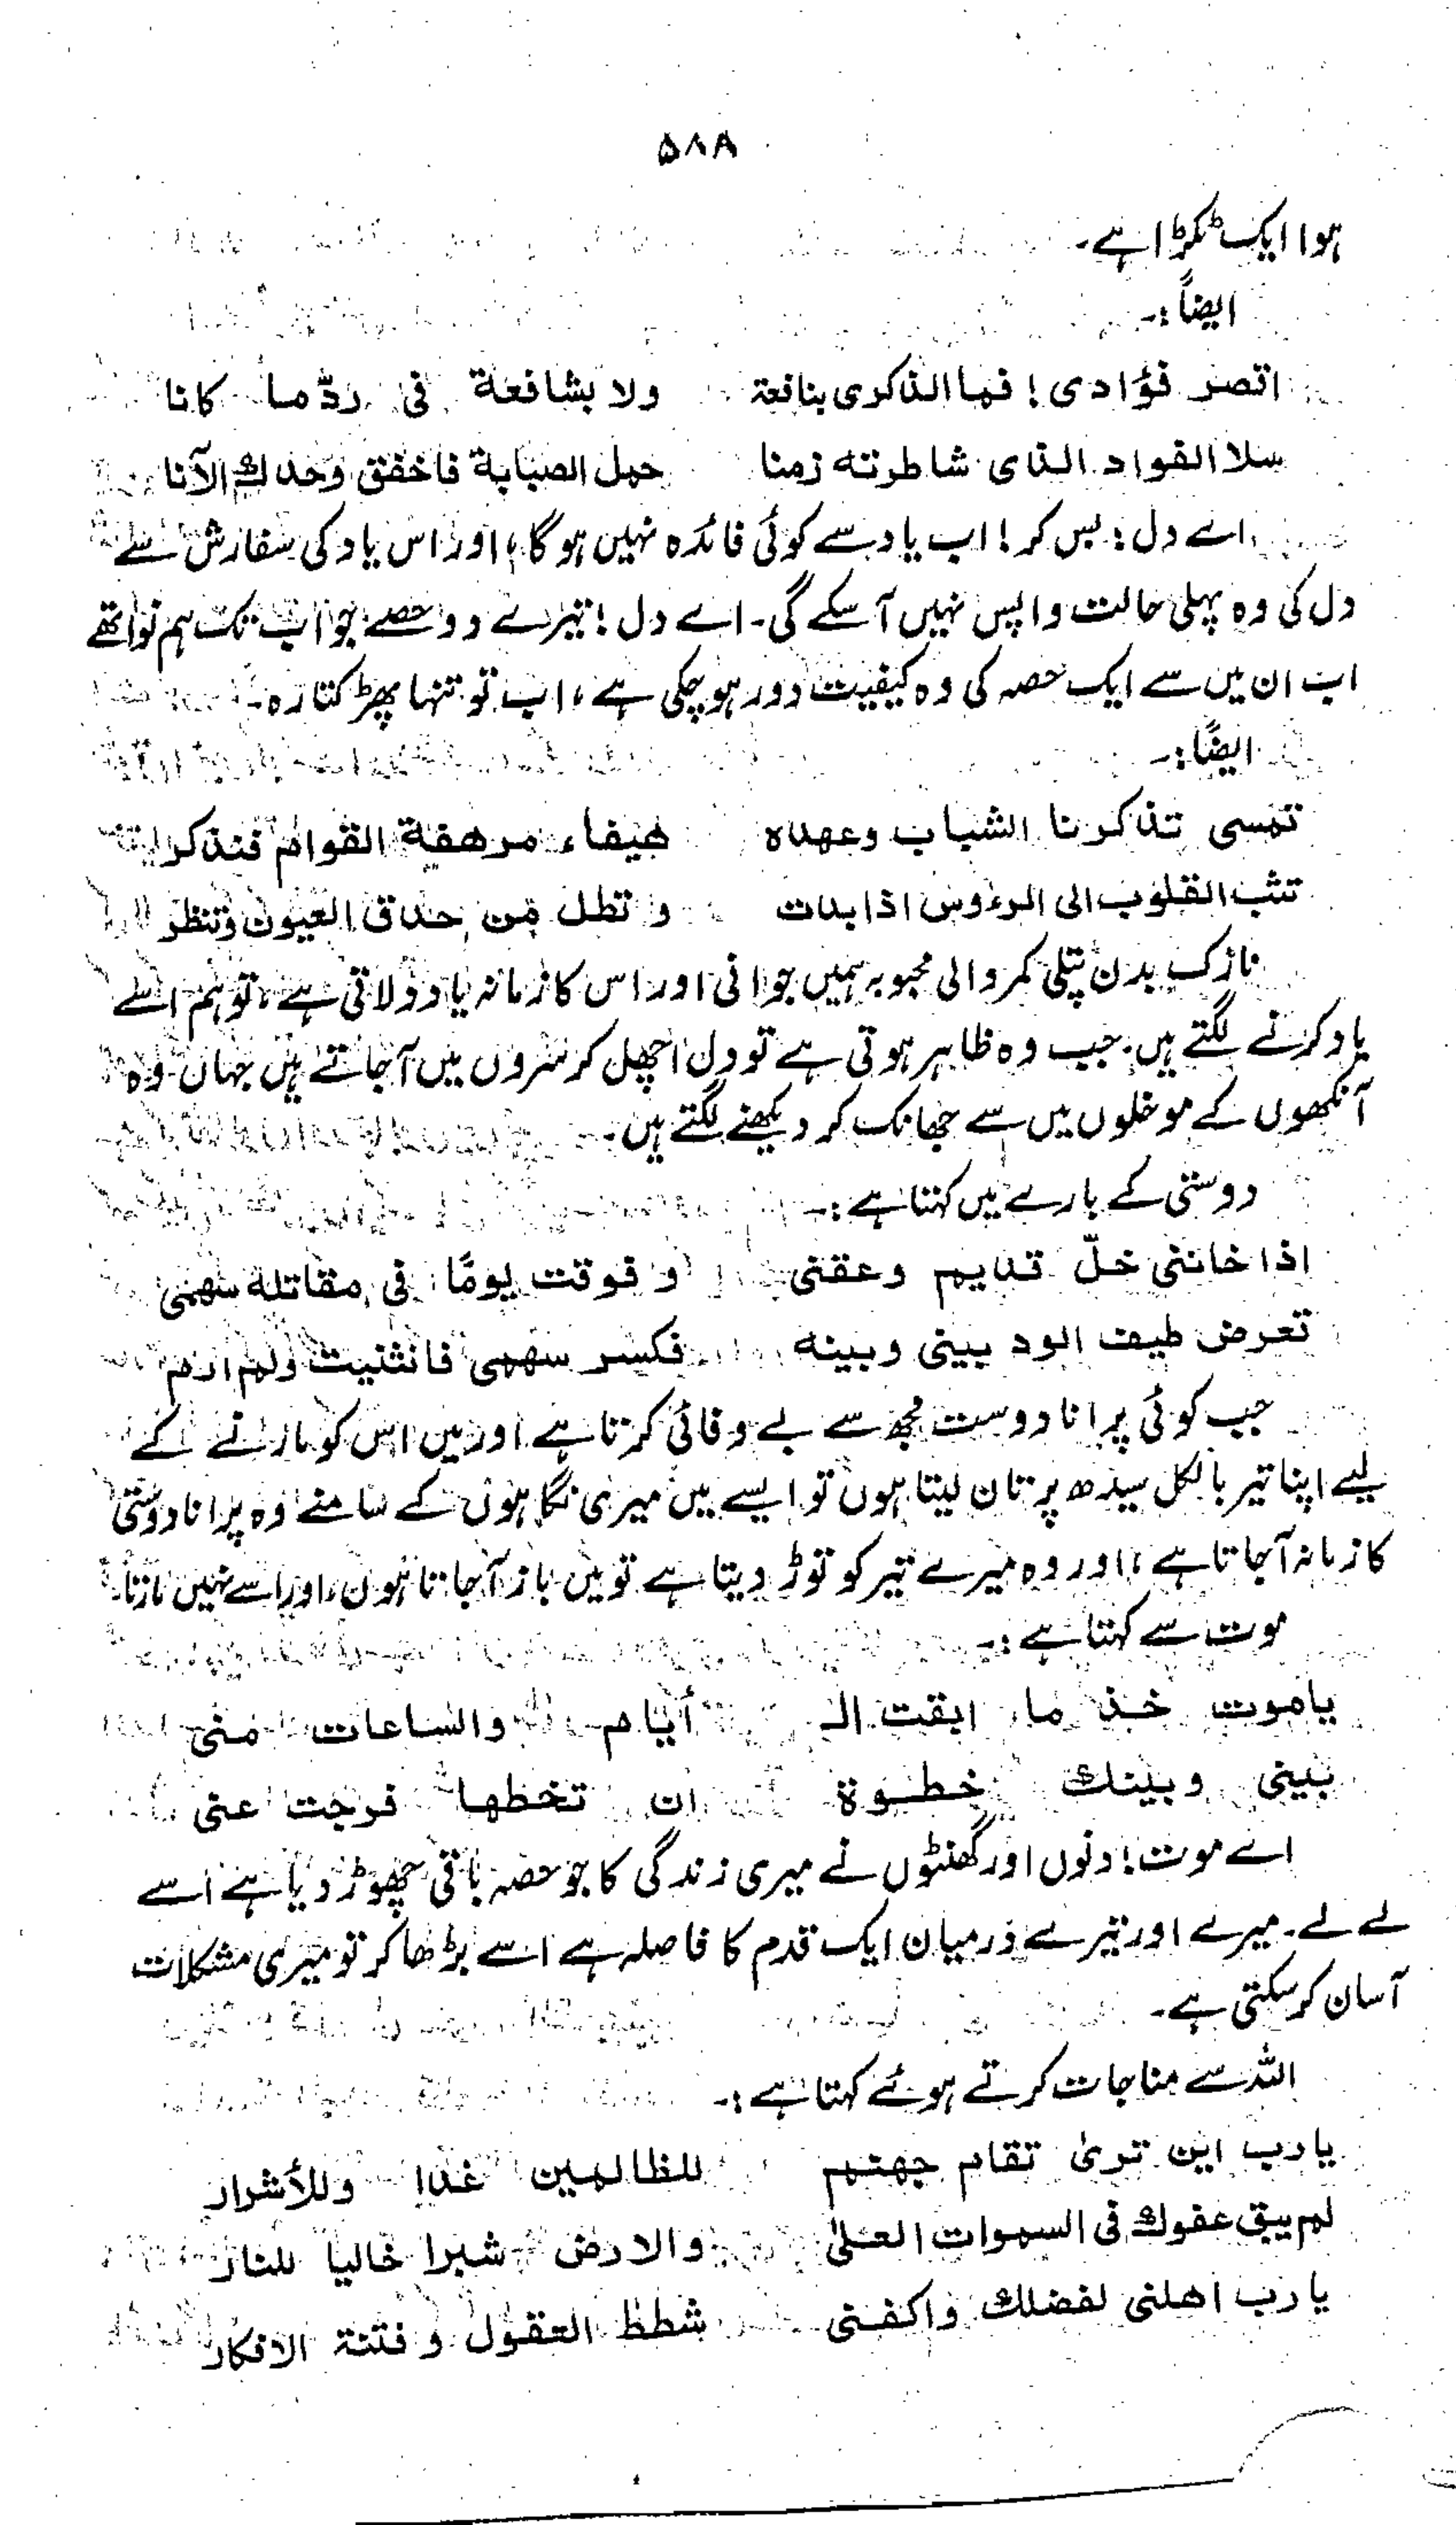 ۵۸۸
ہوا ایک ٹکڑا ہے۔
ایضاً:۔
اقصر فؤادی! فما الذکری بنافعة ولا بشافعة فی ردّ ما کانا
سلا الفواد الذی شاطرته زمنا حمل الصبابة فاخفق وحدك الآنا
اے دل: بس کر! اب یاد سے کوئی فائدہ نہیں ہوگا، اور اس یاد کی سفارش سے
دل کی وہ پہلی حالت واپس نہیں آسکے گی۔ اے دل! تیرے دو حصے جو اب تک ہم نوا تھے
اب ان میں سے ایک حصہ کی وہ کیفیت دور ہوچکی ہے، اب تو تنہا پھڑکتا رہ۔
ایضاً:۔
تمسی تذکرنا الشباب وعهده هیفاء مرهفة القوام فنذکر
تثب القلوب الی الرءوس اذا بدت وتطل من حدق العیون وتنظر
نازک بدن پتلی کمر والی محبوبہ ہمیں جوانی اور اس کا زمانہ یاد دلاتی ہے، تو ہم اسے
یاد کرنے لگتے ہیں۔ جب وہ ظاہر ہوتی ہے تو دل اچھل کر سروں میں آجاتے ہیں جہاں وہ
آنکھوں کے موخلوں میں سے جھانک کر دیکھنے لگتے ہیں۔
دوستی کے بارے میں کہتا ہے:۔
اذا خاننی خلّ قدیم وعقنی وفوقت یومًا فی مقاتله سهمی
تعرض طیف الود بینی وبینه فکسر سهمی فانثنیت ولم ارم
جب کوئی پرانا دوست مجھ سے بے وفائی کرتا ہے اور میں اس کو مارنے کے
لیے اپنا تیر بالکل سیدھ پر تان لیتا ہوں تو ایسے میں میری نگاہوں کے سامنے وہ پرانا دوستی
کا زمانہ آجاتا ہے، اور وہ میرے تیر کو توڑ دیتا ہے تو میں باز آجاتا ہوں، اور اسے نہیں مارتا۔
موت سے کہتا ہے:۔
یاموت خذ ما ابقت الـ أیام والساعات منی
بینی وبینك خطوة ان تخطها فرجت عنی
اے موت! دنوں اور گھنٹوں نے میری زندگی کا جو حصہ باقی چھوڑ دیا ہے اسے
لے لے۔ میرے اور تیرے درمیان ایک قدم کا فاصلہ ہے اسے بڑھا کر تو میری مشکلات
آسان کرسکتی ہے۔
اللہ سے مناجات کرتے ہوئے کہتا ہے:۔
یارب این تریٰ تقام جهنم للظالمین غدا وللأشرار
لم یبق عفوك فی السموات العلیٰ والارض شبرا خالیا للنار
یارب اهلنی لفضلك واکفنی شطط العقول وفتنة الافکار